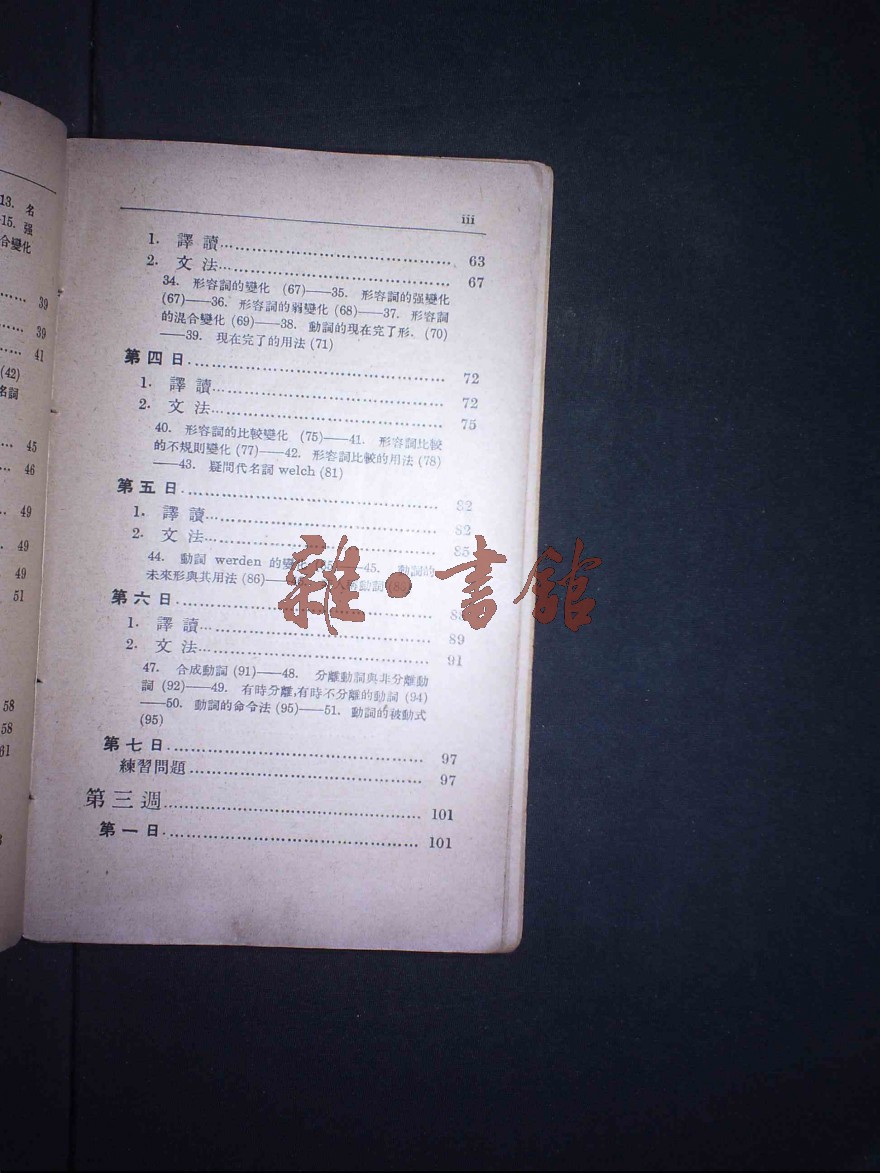 13. 名
15. 强
合變化
39
39
41
(42)
名詞
45
46
49
49
49
51
58
58
61
iii
1. 譯 讀 63
2. 文 法 67
34. 形容詞的變化 (67)——35. 形容詞的强變化
(67)——36. 形容詞的弱變化 (68)——37. 形容詞
的混合變化 (69)——38. 動詞的現在完了形. (70)
——39. 現在完了的用法 (71)
第 四 日 72
1. 譯 讀 72
2. 文 法 75
40. 形容詞的比較變化 (75)——41. 形容詞比較
的不規則變化 (77)——42. 形容詞比較的用法 (78)
——43. 疑問代名詞 welch (81)
第 五 日 82
1. 譯 讀 82
2. 文 法 85
44. 動詞 werden 的變化 (85)——45. 動詞的
未來形與其用法 (86)——人稱動詞
第 六 日
1. 譯 讀 89
2. 文 法 91
47. 合成動詞 (91)——48. 分離動詞與非分離動
詞 (92)——49. 有時分離,有時不分離的動詞 (94)
——50. 動詞的命令法 (95)——51. 動詞的被動式
(95)
第 七 日 97
練習問題 97
第 三 週 101
第 一 日 101
雜·書館